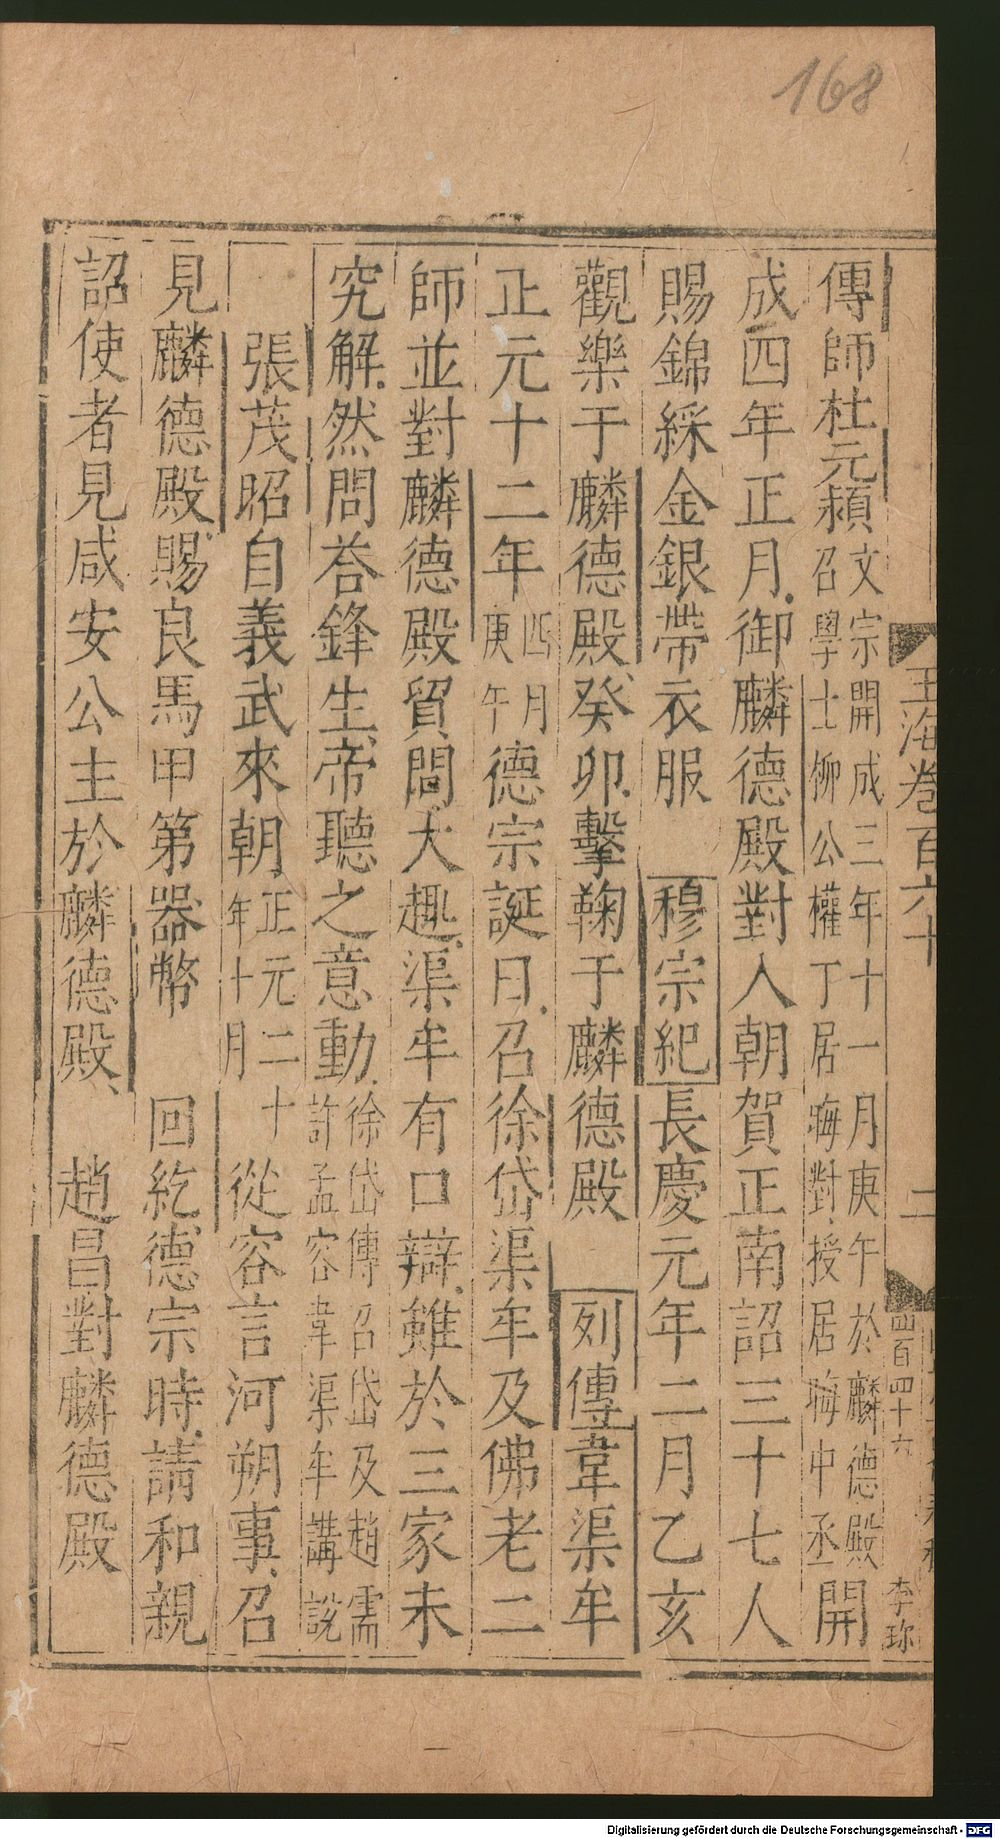 168
玉海卷百六十
二
四百四十六
李珎
傳師杜元潁文宗開成三年十一月庚午於麟德殿召學士柳公權丁居晦對授居晦中丞開
成四年正月御麟德殿對入朝賀正南詔三十七人
賜錦綵金銀帶衣服 穆宗紀長慶元年二月乙亥
觀樂于麟德殿癸卯擊鞠于麟德殿 列傳韋渠牟
正元十二年四月庚午德宗誕日召徐岱渠牟及佛老二
師並對麟德殿質問大趣渠牟有口辯雖於三家未
究解然問荅鋒生帝聽之意動徐岱傳召岱及趙需許孟容韋渠牟講說
張茂昭自義武來朝正元二十年十月從容言河朔事召
見麟德殿賜良馬甲第器幣 回紇德宗時請和親
詔使者見咸安公主於麟德殿 趙昌對麟德殿
Digitalisierung gefördert durch die Deutsche Forschungsgemeinschaft - DFG